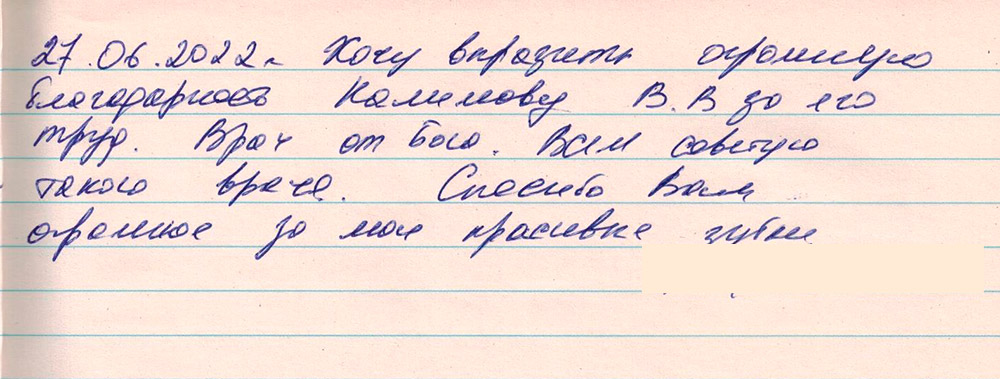 27.06.2022г. Хочу выразить огромную
благодарность Калинову В.В за его
труд. Врач от бога. Всем советую
такого врача. Спасибо Вам
огромное за мои красивые зубки